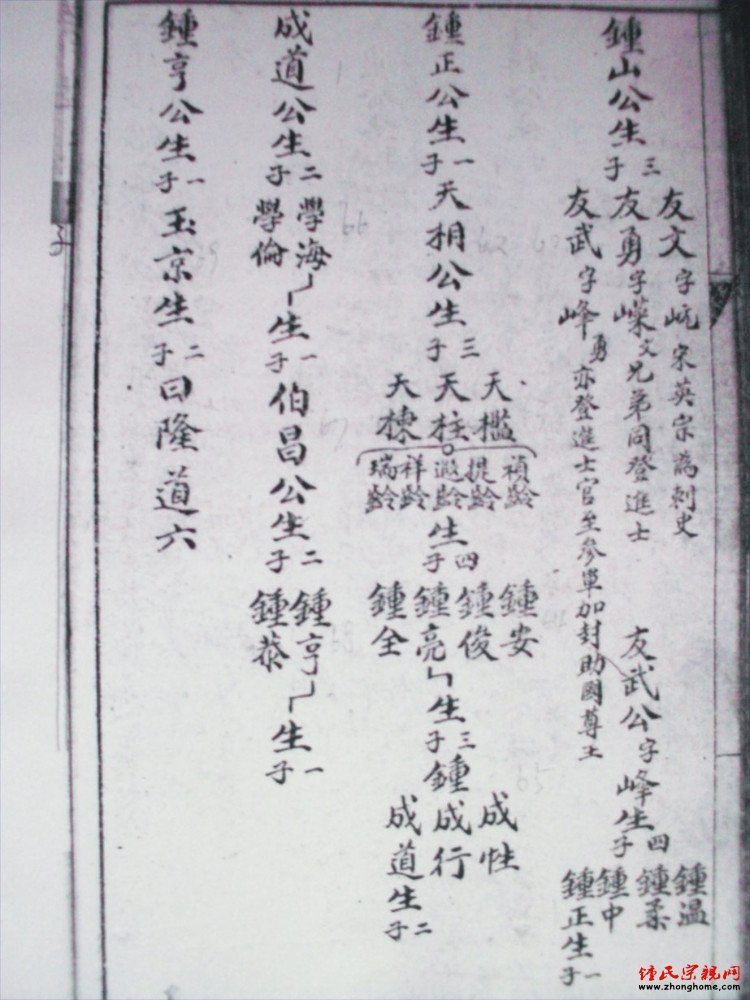 鍾山公生三子
友文字岏宋英宗為刺史
友勇字嶸文兄弟同登進士
友武字峰勇亦登進士官至參軍加封助國尊王
友武公字峰生四子
鍾温
鍾柔
鍾中
鍾正生一子
鍾正公生一子天相公生三子
天檻
天柱
天棟
禎齡
提齡
遐齡
祥齡
瑞齡
生四子
鍾安
鍾俊
鍾亮
鍾全
生三子鍾
成性
成行
成道生二子
成道公生二子
學海
學倫
生一子伯昌公生二子
鍾亨
鍾恭
生一子
鍾亨公生一子玉京生二子曰隆道六
66
62
65
鍾氏宗親网
www.zhonghome.com